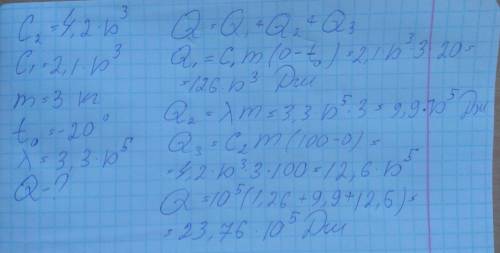 C₂ = 4,2·10³
C₁ = 2,1·10³
m = 3 кг
t₀ = -20°
λ = 3,3·10⁵
Q - ?
Q = Q₁ + Q₂ + Q₃
Q₁ = C₁m(0-t₀) = 2,1·10³·3·20 =
= 126·10³ Дж
Q₂ = λm = 3,3·10⁵·3 = 9,9·10⁵ Дж
Q₃ = C₂m(100-0) =
= 4,2·10³·3·100 = 12,6·10⁵
Q = 10⁵(1,26+9,9+12,6) =
= 23,76·10⁵ Дж